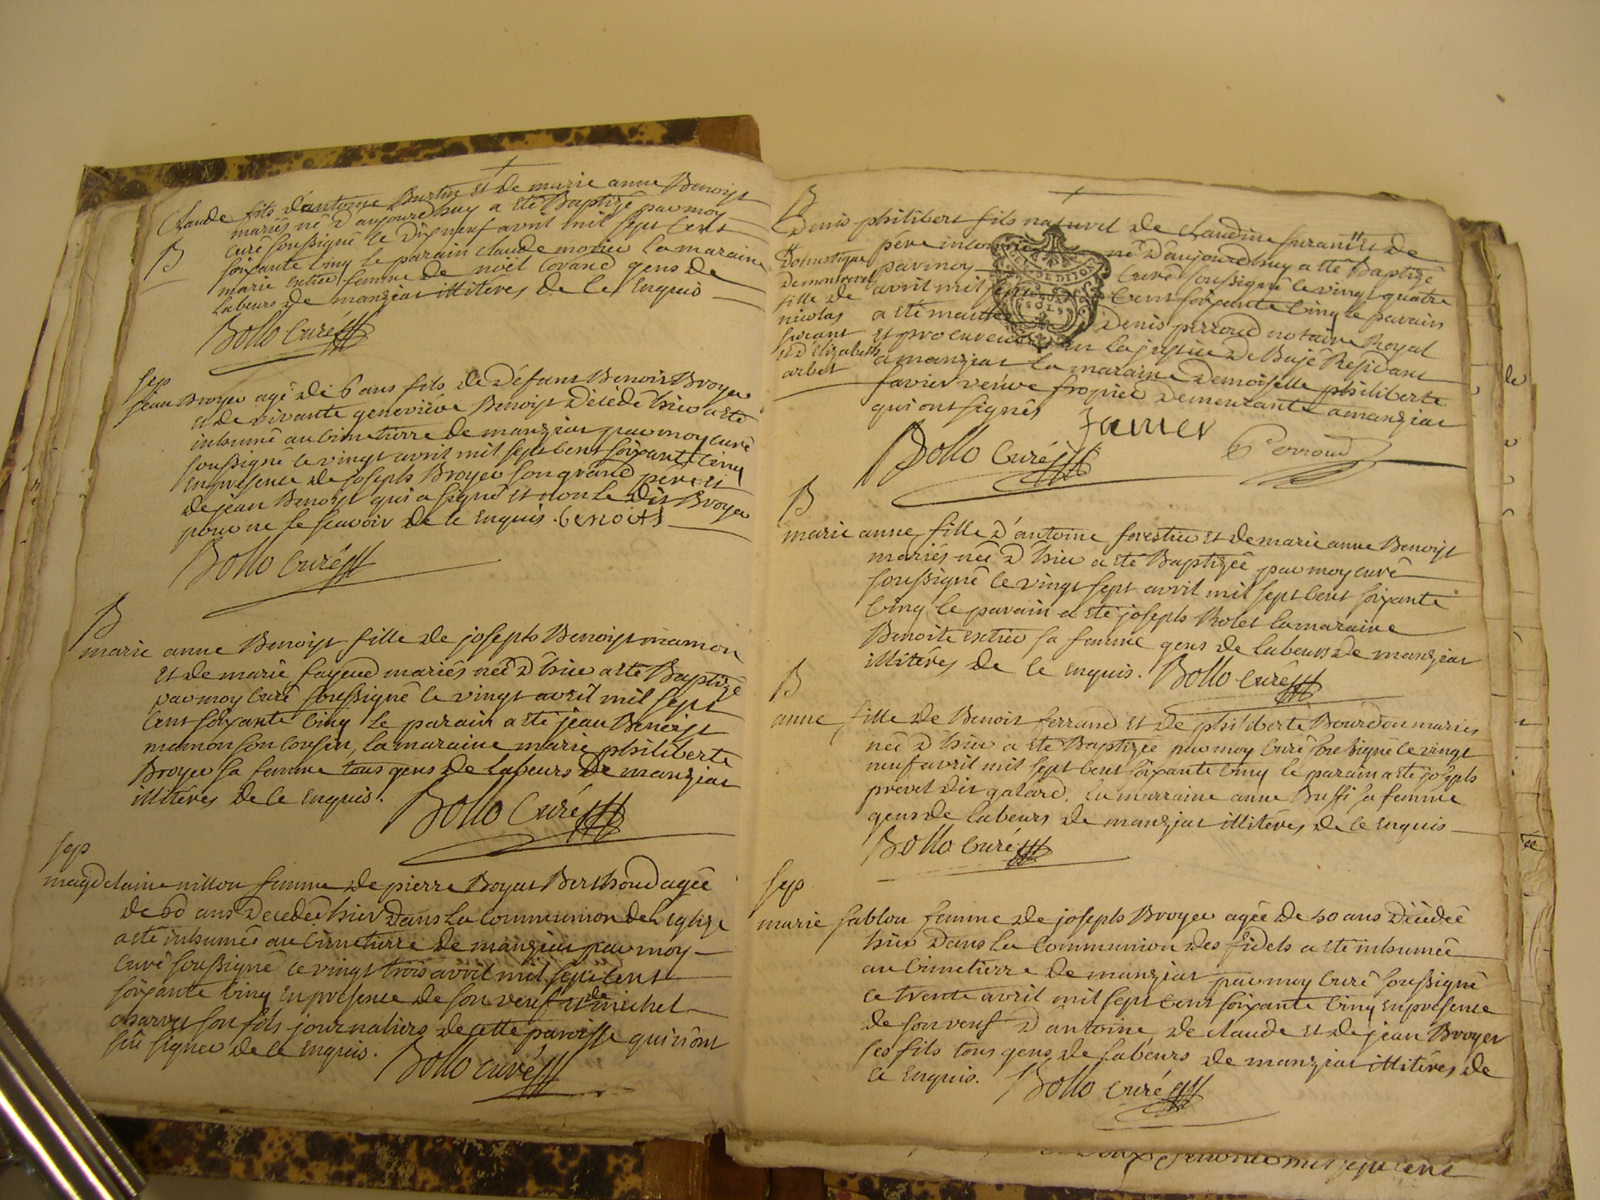 B
Claude fils d'antoine Burtin et de marie anne Benoist
mariés né d'aujourdhuy a été Baptizé par moy
curé soussigné le dixneuf avril mil sept cent
soixante cinq le parain claude la maraine
marie femme de noël gens de
labeurs de manziat illitéres de ce enquis
Bollo Curé
Sep
Jean Broyer agé de 6 ans fils de défunt Benoit Broyer
et de vivante geneviéve Benoist décédé hier a été
inhumé au cimetierre de manziat par moy curé
soussigné le vingt avril mil sept cent soixante cinq
en presence de joseph Broyer son grand pére et
de jean Benoist qui a signé et non le dit Broyer
pour ne le scavoir de ce enquis. benoist
Bollo Curé
B
marie anne Benoist fille de joseph Benoist mamon
et de marie fayard mariés née d'hier a été Baptizé
par moy curé soussigné le vingt avril mil sept
cent soixante cinq le parain a été jean Benoist
mamon son cousin, la maraine marie philiberte
Broyer sa femme tous gens de labeurs de manziat
illitéres de ce enquis. Bollo Curé
Sep
magdelaine nillon femme de pierre Boyat Berthoud agée
de 60 ans decedée hier dans la communion de l'eglize
a été inhumée au cimetierre de manziat par moy
curé soussigné ce vingt trois avril mil sept cent
soixante cinq en presence de son veuf et de michel
charvet son fils journaliers de cette paroisse qui n'ont
sçu signer de ce enquis. Bollo curé
B
Denis philibert fils naturel de claudine furant et de
pére inconnu né d'aujourdhuy a été Baptizé
par moy curé soussigné le vingt quatre
avril mil sept cent soixante cinq le parain
a été maitre Denis perroud notaire Royal
et procureur en la justice de Bagé Residant
a manziat la maraine Demoiselle philiberte
favier veuve frognier demeurante a manziat
qui ont signés
Domestique
de
fille de
nicolas
furant
et d'Elizabeth
arbet
favier
Perroud
Bollo Curé
B
marie anne, fille d'antoine forestier et de marie anne Benoist
mariés née d'hier a été Baptizée par moy curé
soussigné le vingt sept avril mil sept cent soixante
cinq le parain a été joseph Bolet la maraine
Benoite sa femme gens de labeurs de manziat
illitéres de ce enquis. Bollo Curé
B
anne, fille de Benoit ferrand et de philiberte Bourdon mariés
née d'hier a été Baptizée par moy curé soussigné ce vingt
neuf avril mil sept cent soixante cinq le parain a été joseph
prevel dit galard, la marraine anne Buffi sa femme
gens de labeurs de manziat illitéres de ce enquis
Bollo Curé
Sep
marie sablon femme de joseph Broyer agée de 40 ans décédée
hier dans la communion des fidels a été inhumée
au cimetierre de manziat par moy curé soussigné
ce trente avril mil sept cent soixante cinq en presence
de son veuf d'antoine, de claude et de jean Broyer
ses fils tous gens de labeurs de manziat illitéres de
ce enquis. Bollo Curé